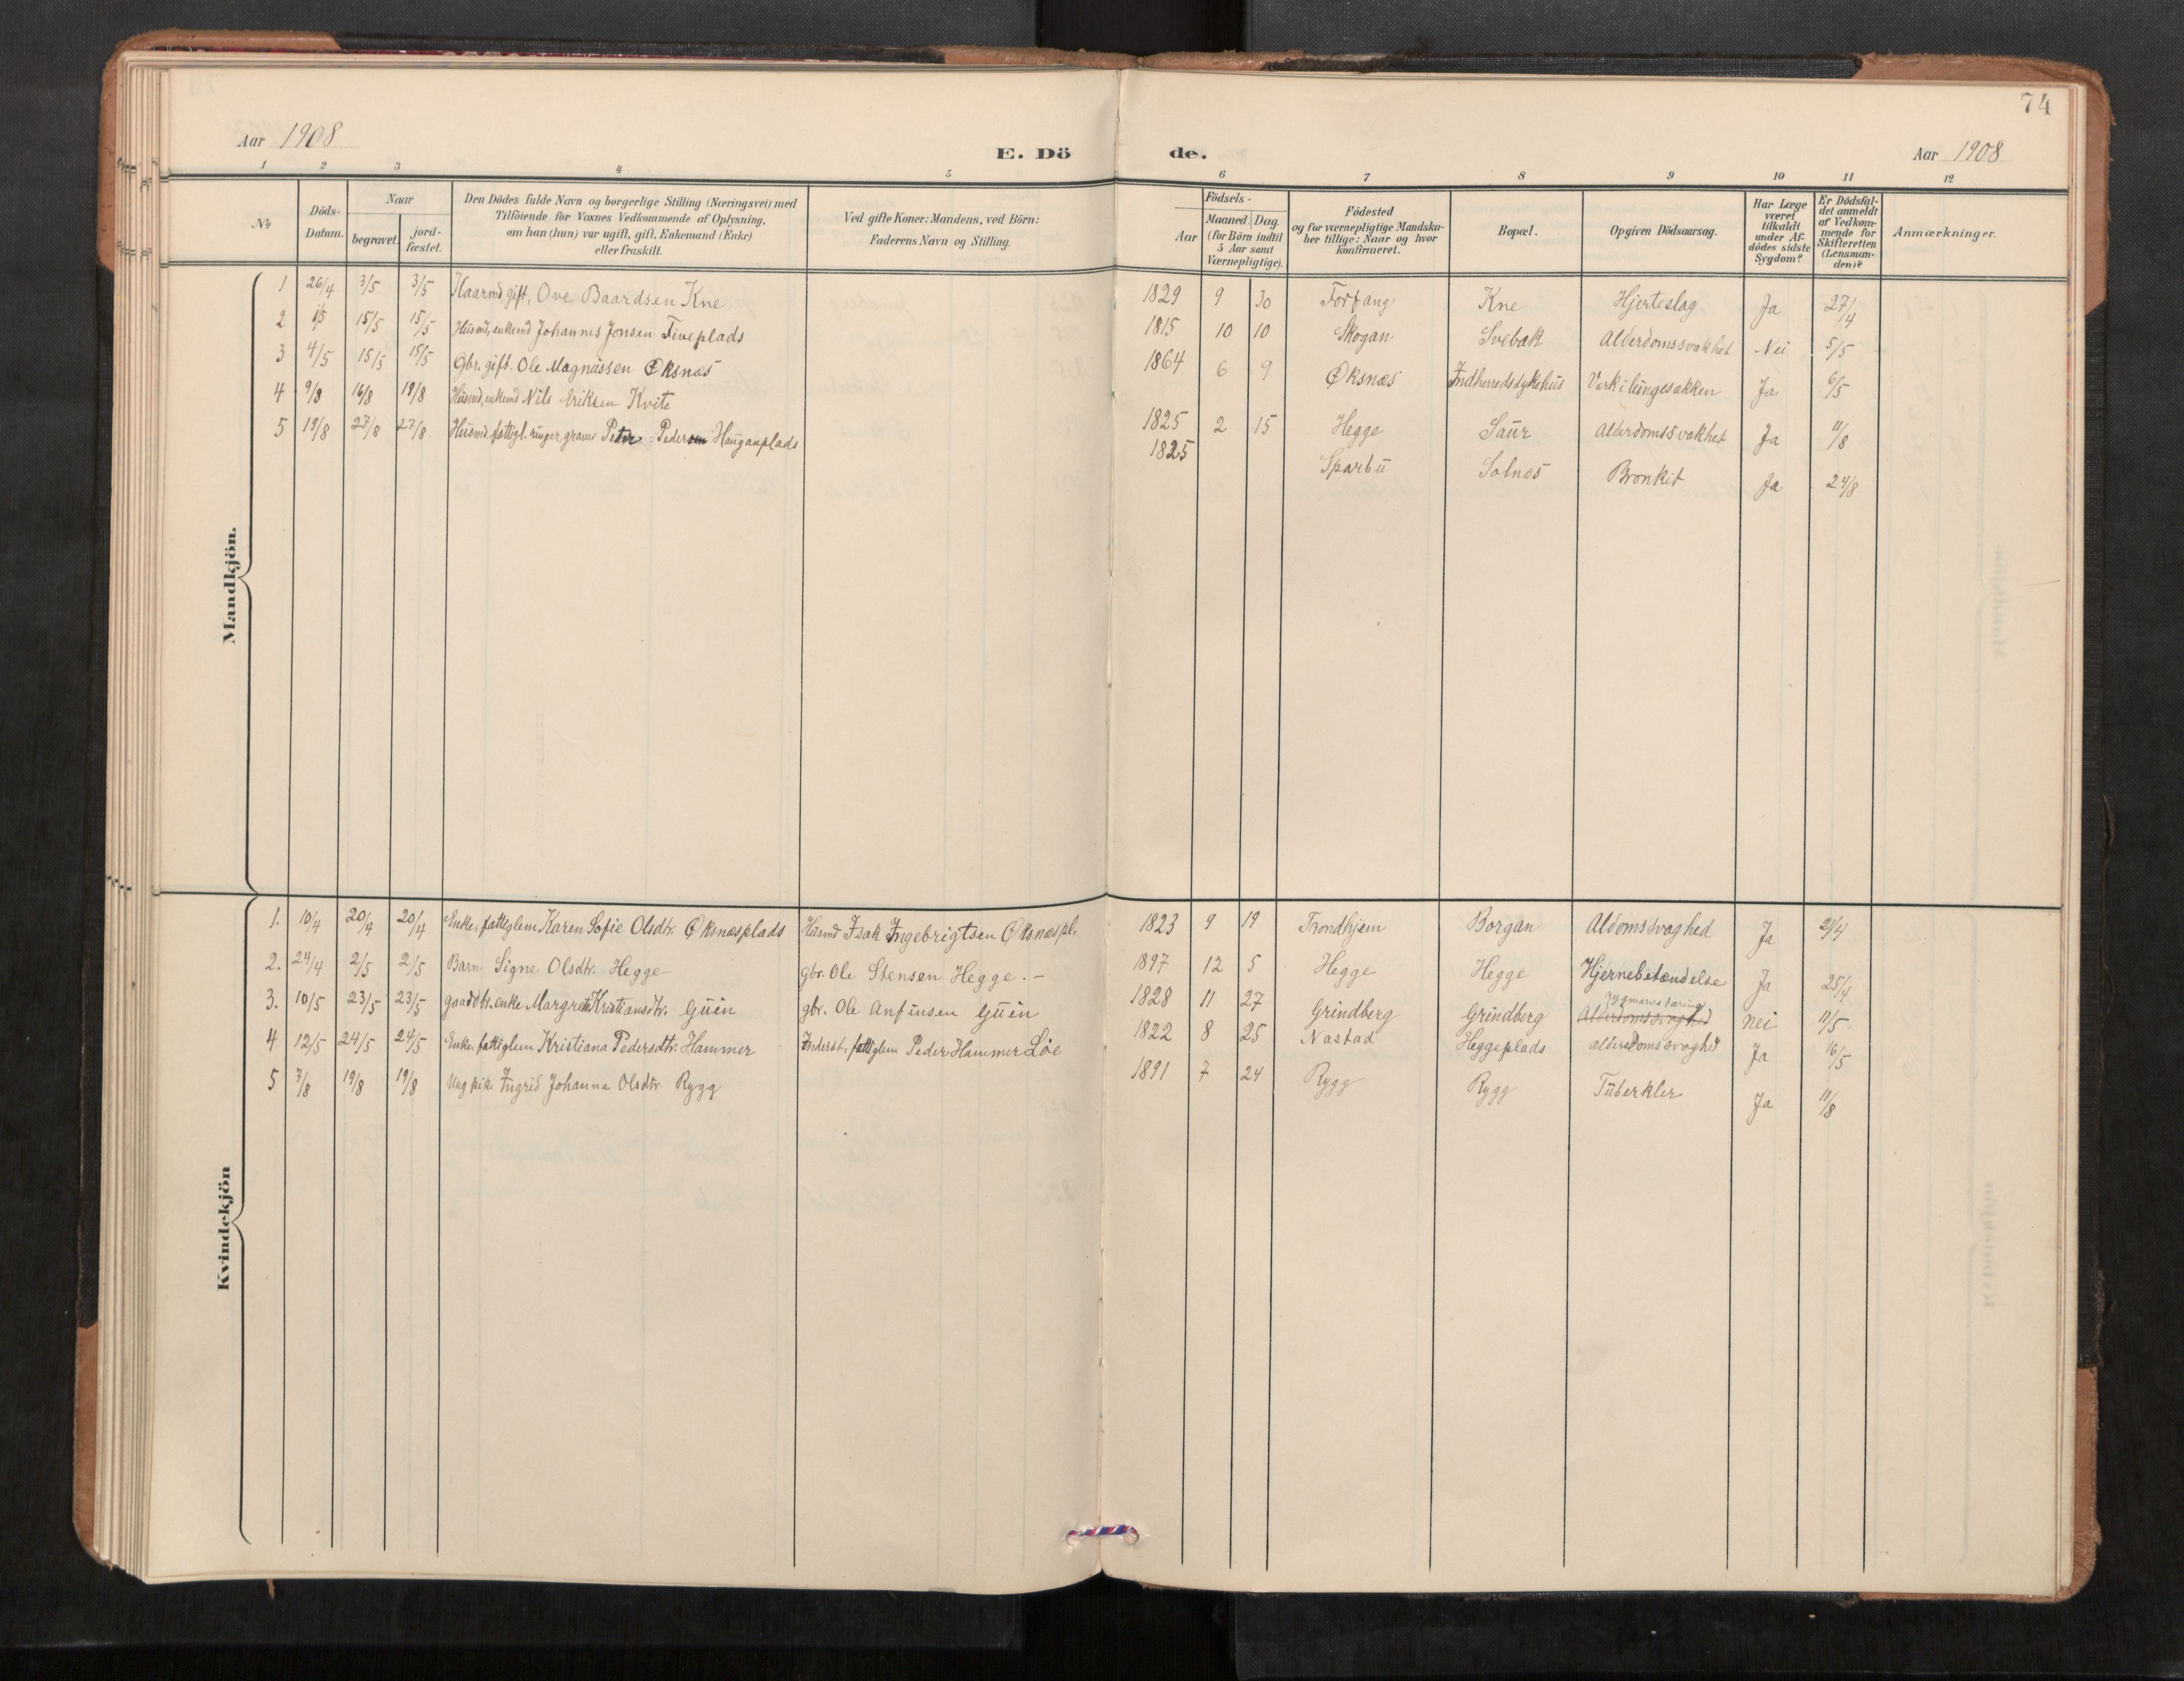 74
Aar 1908
E. Dö de.
Aar 1908
1 2 3 4 5 6 7 8 9 10 11 12
No
Döds-Datum.
Naar
begravet.
jord-fæstet.
Den Dödes fulde Navn og borgerlige Stilling (Næringsvei) med
Tilföiende for Voxnes Vedkommende af Oplysning,
om han (hun) var ugift, gift, Enkemand (Enke)
eller fraskilt.
Ved gifte Koner: Mandens, ved Börn:
Faderens Navn og Stilling.
Födsels-
Aar
Maaned. Dag
(for Börn indtil
5 Aar samt
Værnepligtige).
Födested
og for værnepligtige Mandska-
ber tillige: Naar og hvor
konfirmeret.
Bopæl.
Opgiven Dödsaarsag.
Har Læge
været
tilkaldt
under Af-
dödes sidste
Sygdom?
Er Dödsfal-
det anmeldt
af Vedkom-
mende for
Skifteretten
(Lensman-
den)?
Anmærkninger.
Mandkjön.
1 26/4 3/5 3/5 Kaarmd, gift, Ove Baardsen Kne 1829 9 30 Forfang Kne Hjerteslag Ja 27/4
2 1/5 15/5 15/5 Husmd, enkemd Johannes Jonsen Tiveplads 1815 10 10 Skogan Svebak Alderdomssvakhet Nei 5/5
3 4/5 15/5 15/5 Gbr. gift. Ole Magnussen Øksnæs 1864 6 9 Øksnæs Indherredssykehus Værk i lungesækken Ja 6/5
4 9/8 16/8 19/8 Husmd, enkemd Nils Eriksen Kvite 1825 2 15 Hegge Saur Alderdomssvakhet Ja 11/8
5 19/8 27/8 27/8 Husmd. fattigl. ringer, graver Peder Pedersen Hauganplads 1825 Sparbu Solnæs Bronkit Ja 24/8
Kvindekjön
1. 10/4 20/4 20/4 Enke, fattiglem Karen Sofie Olsdtr. Øksnæsplads Husmd Isak Ingebrigtsen Øksnæspl. 1823 9 19 Trondhjem Borgan Aldomssvaghed Ja 21/4
2. 24/4 2/5 2/5 Barn Signe Olsdtr. Hegge gbr. Ole Stensen Hegge. – 1897 12 5 Hegge Hegge Hjernebetændelse Ja 25/4
3. 10/5 23/5 23/5 gaarddtr. enke Margrete Kristiansdtr. Guin gbr. Ole Anfinsen Guin 1828 11 27 Grindberg Grindberg Rygmarvstæring Alderdomssvaghed nei 11/5
4 12/5 24/5 24/5 Enke, fattiglem Kristiana Pedersdtr. Hammer Inderst, fattiglem Peder Hammer Løe 1822 8 25 Nastad Heggeplads alderdomssvaghed Ja 16/5
5 7/8 19/8 19/8 Ung pike Ingrid Johanna Olsdtr. Rygg 1891 7 24 Rygg Rygg Tuberkler Ja 11/8